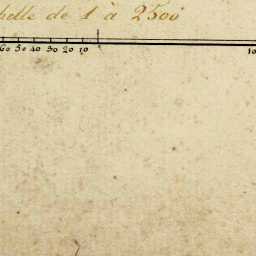 helle de 1 à 2500
60 50 40 30 20 10 10